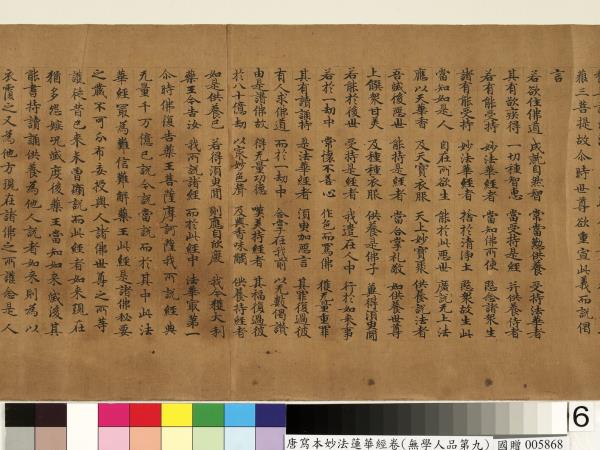 三菩提故尒時世尊欲重宣此義而說偈
言
若欲住佛道 成就自然智 常當懃供養 受持法華者
其有欲疾得 一切種智慧 當受持是經 并供養持者
若有能受持 妙法華經者 當知佛所使 愍念諸衆生
諸有能受持 妙法華經者 捨於清淨土 愍衆故生此
當知如是人 自在所欲生 能於此惡世 廣說无上法
應以天華香 及天寶衣服 天上妙寶聚 供養說法者
吾滅後惡世 能持是經者 當合掌礼敬 如供養世尊
上饌衆甘美 及種種衣服 供養是佛子 冀得須臾聞
若能於後世 受持是經者 我遣在人中 行於如來事
若於一劫中 常懷不善心 作色而罵佛 獲无量重罪
其有讀誦持 是法華經者 須臾加惡言 其罪復過彼
有人求佛道 而於一劫中 合掌在我前 以无數偈讚
由是讚佛故 得无量功德 歎美持經者 其福復過彼
於八十億劫 以最妙色聲 及與香味觸 供養持經者
如是供養已 若得須臾聞 則應自欣慶 我今獲大利
藥王今告汝 我所說諸經 而於此經中 法華最第一
尒時佛復告藥王菩薩摩訶薩我所說經典
无量千万億已說今說當說而於其中此法
華經冣為難信難解藥王此經是諸佛秘要
之藏不可分布妄授與人諸佛世尊之所守
護從昔已來未曾顯說而此經者如來現在
猶多怨嫉況滅度後藥王當知如來滅後其
能書持讀誦供養為他人說者如來則為以
衣覆之又為他方現在諸佛之所護念是人
6
唐寫本妙法蓮華經卷(無學人品第九) 國贈 005868